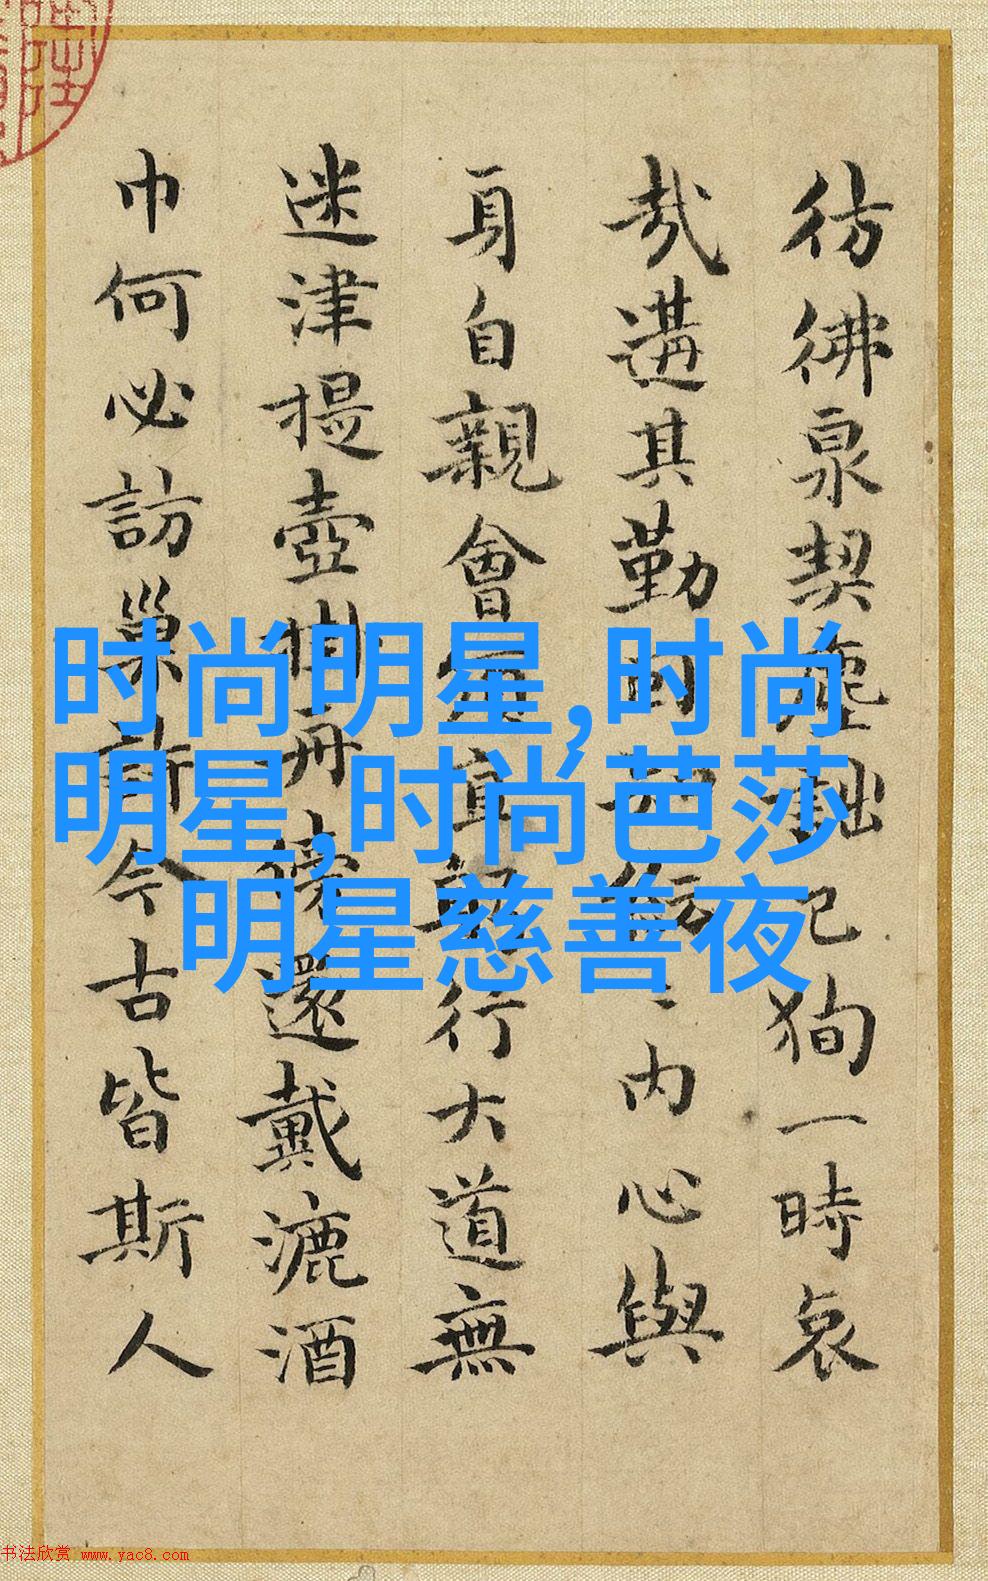 彷彿泉契已狥一時哀
哉遘其勤内心與
身自親會宜行大道無
迷津提壺還戴漉酒
巾何必訪巢許今古皆斯人
时尚明星,时尚
明星,时尚芭莎
明星慈善夜
书法欣赏 www.yac8.com